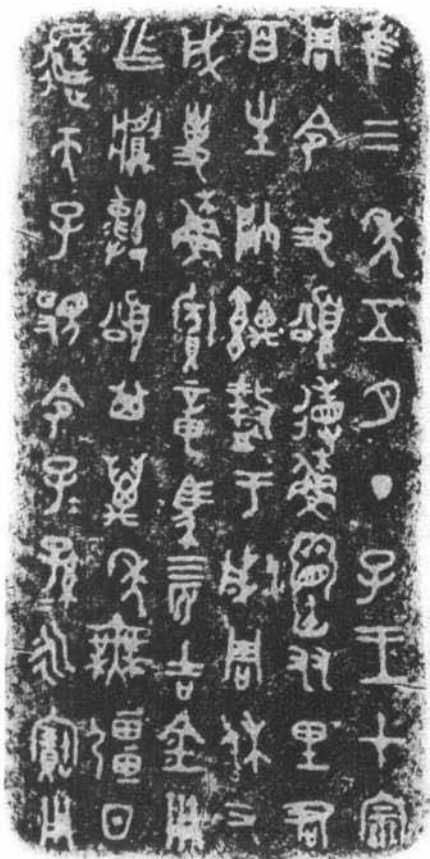 隹三年五月丁子王才宗
周令史頌省穌友里君
百生帥盩于成周休又
成事穌賓章馬四匹吉金用
乍䵼彝頌其萬年無疆日
天子令子=孫=永寶用